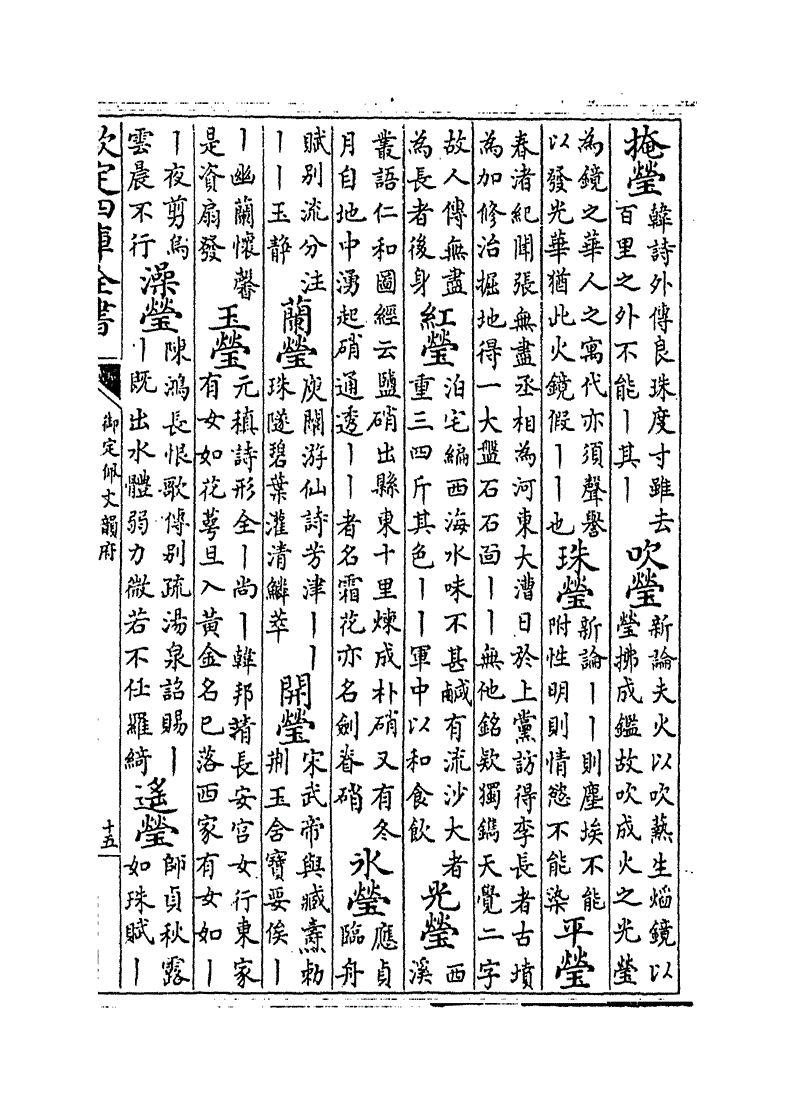 掩瑩韓詩外傳良珠度寸雖去百里之外不能丨其丨吹瑩新論夫火以吹爇生焰鏡以瑩拂成鑑故吹成火之光瑩
為鏡之華人之寓代亦須聲譽以發光華猶此火鏡假丨丨也珠瑩新論丨丨則塵埃不能附性明則情慾不能染平瑩
春渚紀聞張無盡丞相為河東大漕日於上黨訪得李長者古墳為加修治掘地得一大盤石石面丨丨無他銘欵獨鐫天覺二字
故人傳無盡為長者後身紅瑩泊宅編西海水味不甚鹹有流沙大者重三四斤其色丨丨軍中以和食飲光瑩西溪
叢語仁和圖經云鹽硝出縣東十里煉成朴硝又有冬月自地中湧起硝通透丨丨者名霜花亦名劍脊硝氷瑩應貞臨舟
賦別流分注丨丨玉靜蘭瑩庾闡游仙詩芳津丨丨珠隧碧葉灌清鱗萃開瑩宋武帝與臧燾勅荆玉含寶要俟丨
丨幽蘭懷馨是資扇發玉瑩元稹詩形全丨尚丨韓邦靖長安宫女行東家有女如花萼旦入黃金名已落西家有女如丨
丨夜剪烏雲晨不行澡瑩陳鴻長恨歌傳别疏湯泉詔賜丨丨既出水體弱力微若不任羅綺遙瑩師貞秋露如珠賦丨
欽定四庫全書 御定佩文韻府 十五